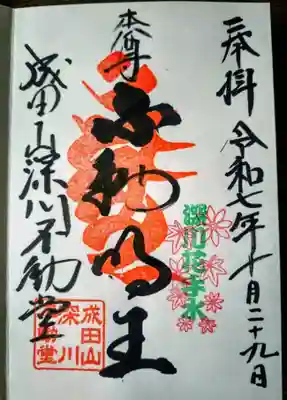 奉拝 令和七年十月二十九日
本尊
不動明王
深川花手水
成田山深川不動堂
成田山
深川
不動堂